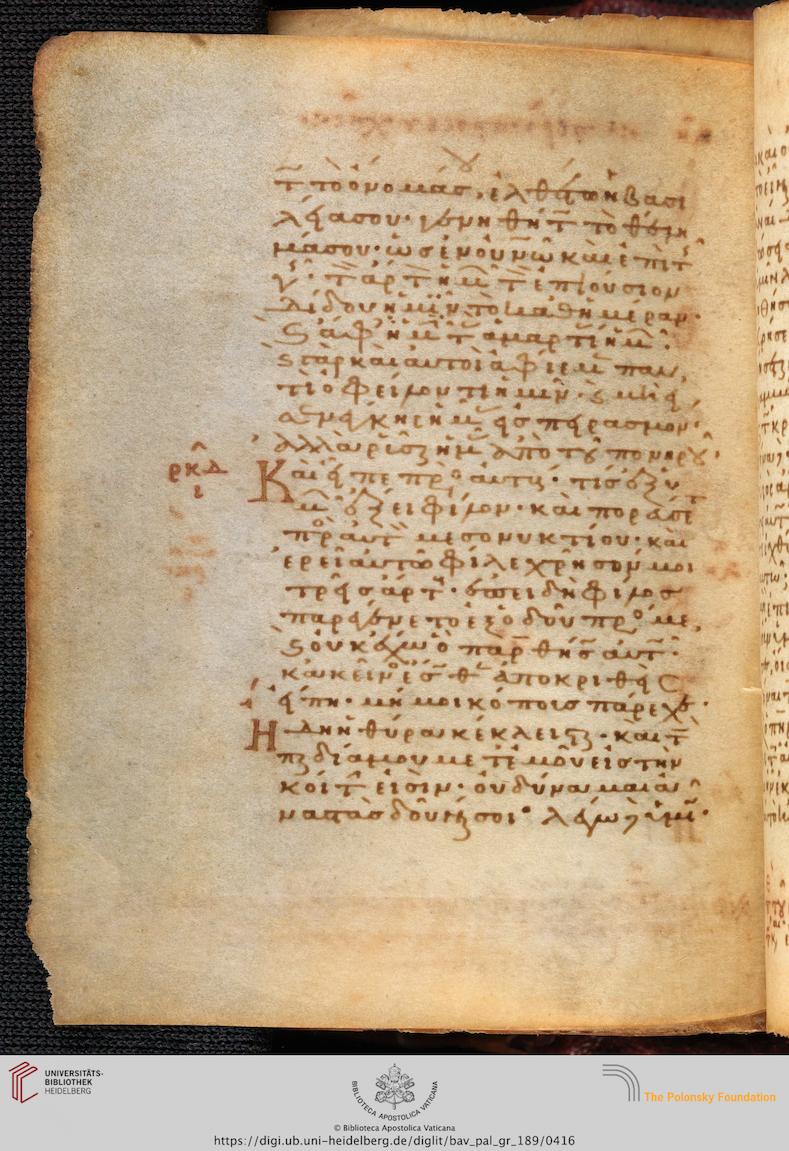 τ̄ τὸ ὄνομά σου, ἐλθάτω ἡ βασι
λεία σου· γενηθήτ̄ τὸ θέλη
μά σου· ὡς ἐν οὐν̄ω καὶ ἐπὶ τ
γ̂· τ̄ ἄρτ ἡμ̂ τ̄ ἐπιούσιον
δίδου ἡμῖν τὸ καθημέραν·
ϛ ἄφ ἡμ̂ τ̄ ἁμαρτί ἡμ̂·
ϛ γὰρ καὶ αὐτοὶ ἀφίεμ παν
τὶ ὀφείλοντι ἡμῖν· ϛ μὴ εἰ
σενέγκῃς ἡμ̂ εἰς πειρασμόν·
ἀλλὰ ῥῦσαι ἡμ̂ ἀπὸ τοῦ πονηροῦ·
ρκδ
ι
Καὶ εἶπε πρὸ αὐτς· τίς ἐξ ὑ
μ̂ ἕξει φίλον· καὶ πορεύσε
πρὸ αὐτ μεσονυκτίου· καὶ
ἐρεῖ αὐτῶ φίλε χρῆσόν μοι
τρεῖς ἄρτ· ἐπειδὴ φίλος
παρεγένετο ἐξ ὁδοῦ πρό με,
ϛ οὐκ ἔχω ὃ παρ̄θήσ αὐτ·
κἀκεῖνο ἔσ̄θ ἀποκριθεὶς
εἴπη· μή μοι κόπους πάρεχε·
Ἤδη ἡ θύρα κέκλεισται· καὶ τ̄
παιδία μου μετ ἐμοῦ εἰς τὴν
κοίτ εἰσίν· οὐ δύναμαι ἀ
ναστὰς δοῦναί σοι· λέγω ὑμ̂·
UNIVERSITÄTS-
BIBLIOTHEK
HEIDELBERG
BIBLIOTHECA APOSTOLICA VATICANA
The Polonsky Foundation
© Biblioteca Apostolica Vaticana
https://digi.ub.uni-heidelberg.de/diglit/bav_pal_gr_189/0416